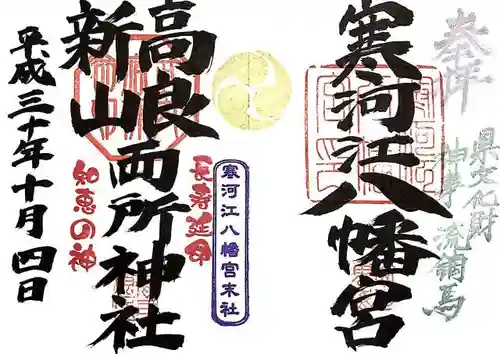 奉拝
県文化財
神事 流鏑馬
寒河江八幡宮
寒河江八幡宮末社
長寿延命
高良
新山
両所神社
知恵の神
平成三十年十月四日